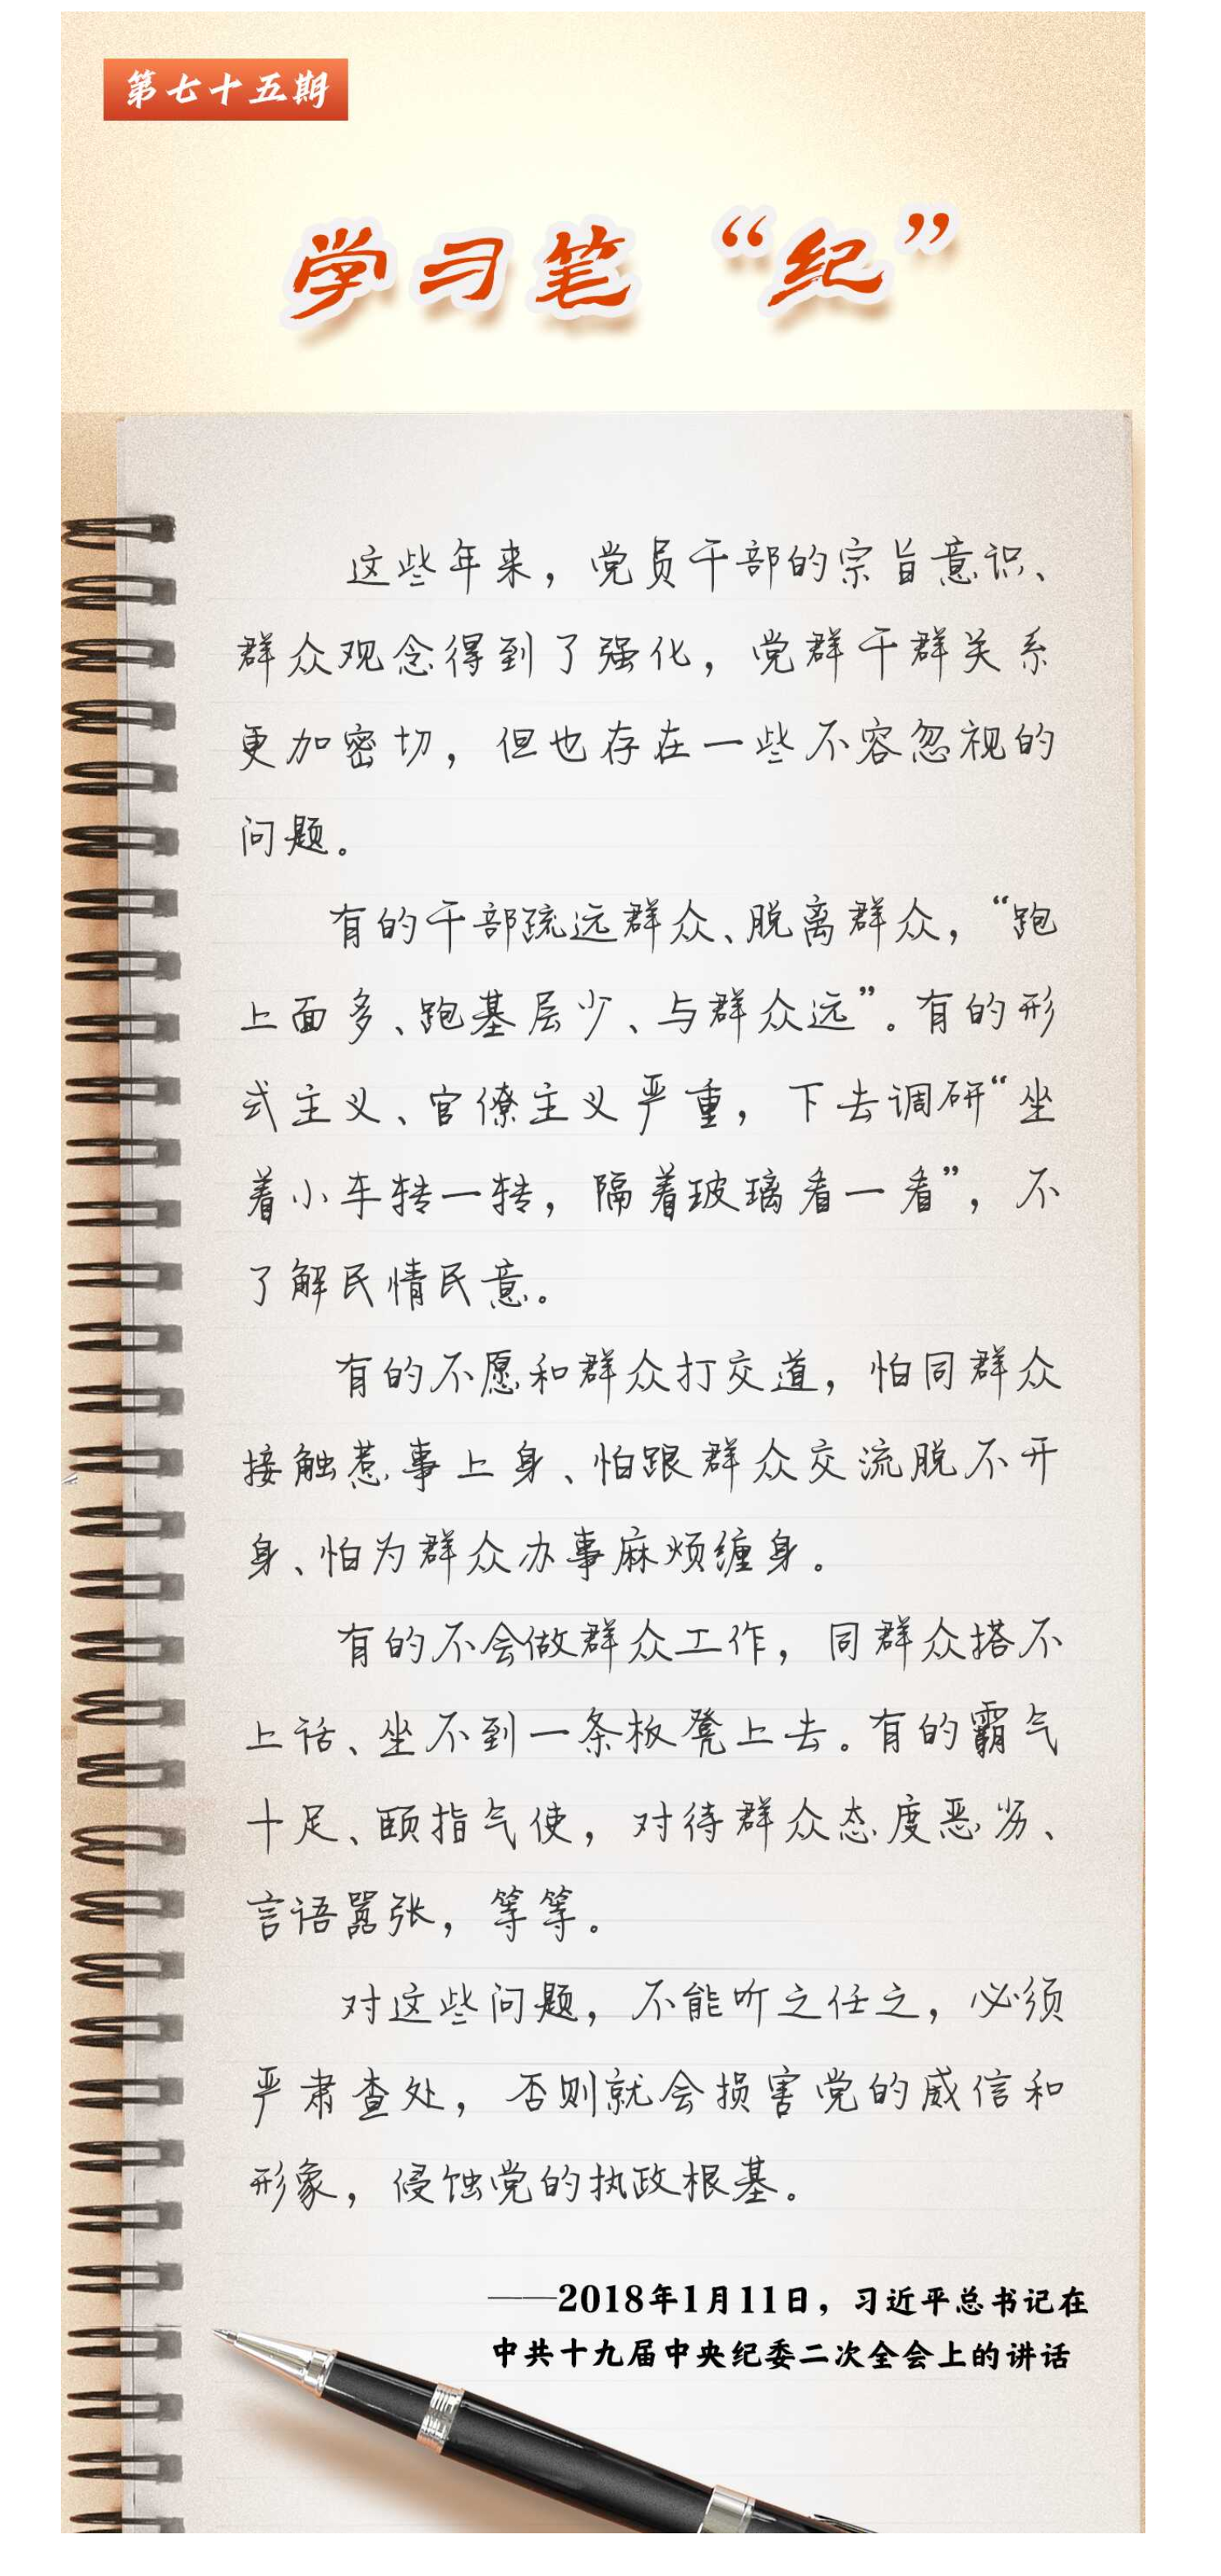 第七十五期
学习笔“纪”
这些年来，党员干部的宗旨意识、
群众观念得到了强化，党群干群关系
更加密切，但也存在一些不容忽视的
问题。
有的干部疏远群众、脱离群众，“跑
上面多、跑基层少、与群众远”。有的形
式主义、官僚主义严重，下去调研“坐
着小车转一转，隔着玻璃看一看”，不
了解民情民意。
有的不愿和群众打交道，怕同群众
接触惹事上身、怕跟群众交流脱不开
身、怕为群众办事麻烦缠身。
有的不会做群众工作，同群众搭不
上话、坐不到一条板凳上去。有的霸气
十足、颐指气使，对待群众态度恶劣、
言语嚣张，等等。
对这些问题，不能听之任之，必须
严肃查处，否则就会损害党的威信和
形象，侵蚀党的执政根基。
——2018年1月11日，习近平总书记在
中共十九届中央纪委二次全会上的讲话